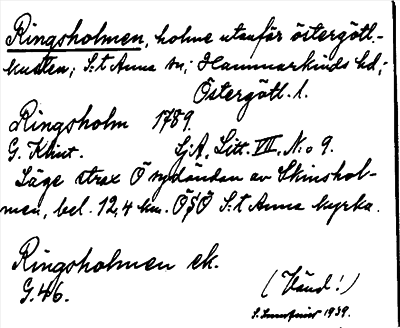 Ringsholmen, holme utanför östergötl.-
kusten; S:t Anna sn; Hammarkinds hd;
Östergötl. l.
Ringsholm 1789.
G. Klint. SjA, Litt. VII, N:o 9.
Läge strax Ö sydändan av Skinshol-
men, bel. 12,4 km. ÖSÖ S:t Anna kyrka.
Ringsholmen ek.
G. 46.
(Vänd!)
1939.